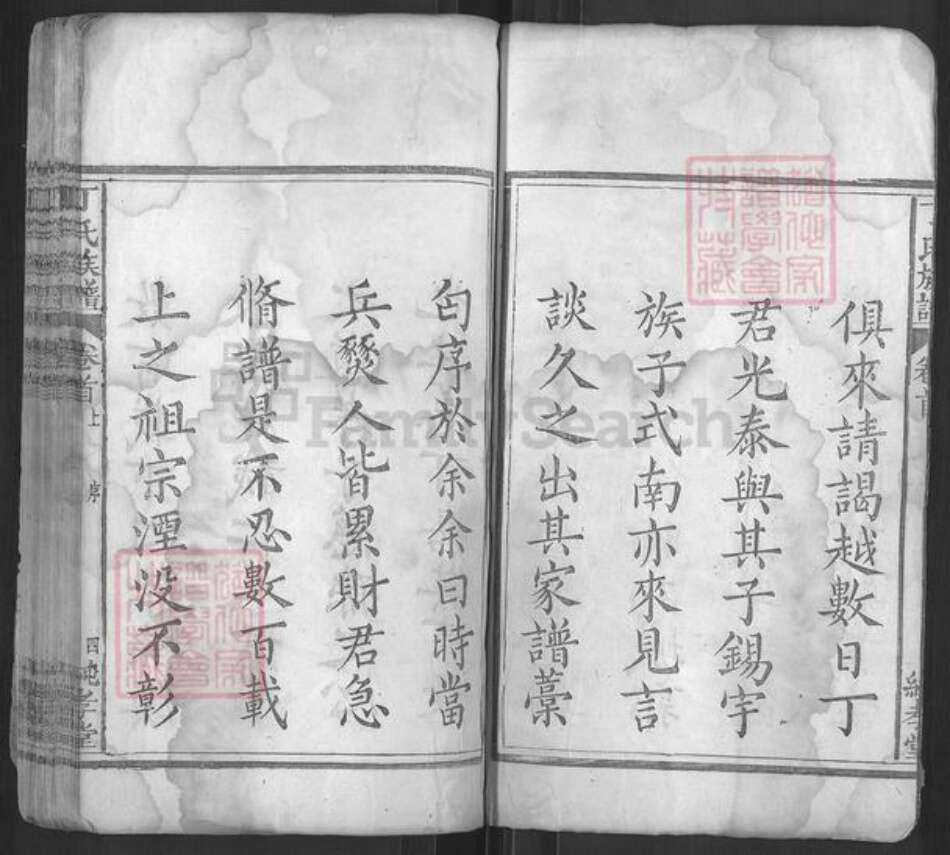 俱來請謁越數日丁
君光泰與其子錫宇
族子式南亦來見言
談久之出其家譜藁
匄序於余余曰時當
兵燹人皆累財君急
脩譜是不忍數百載
上之祖宗湮没不彰
丁氏族譜
卷首上
序
四
純孝堂
FamilySearch